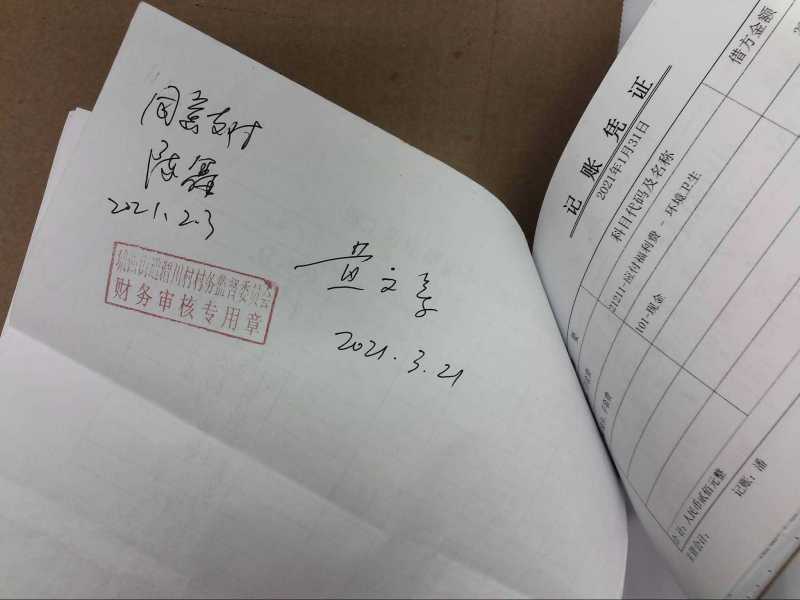 同意支付
陈磊
2021.2.3
村村务监督委员会
财务审核专用章
黄文学
2021.3.21
记账凭证
2021年1月31日
科目代码及名称
借方金额
21211-应付福利费 - 环境卫生
101-现金
合计：人民币贰佰元整
主管会计：
记账：潘